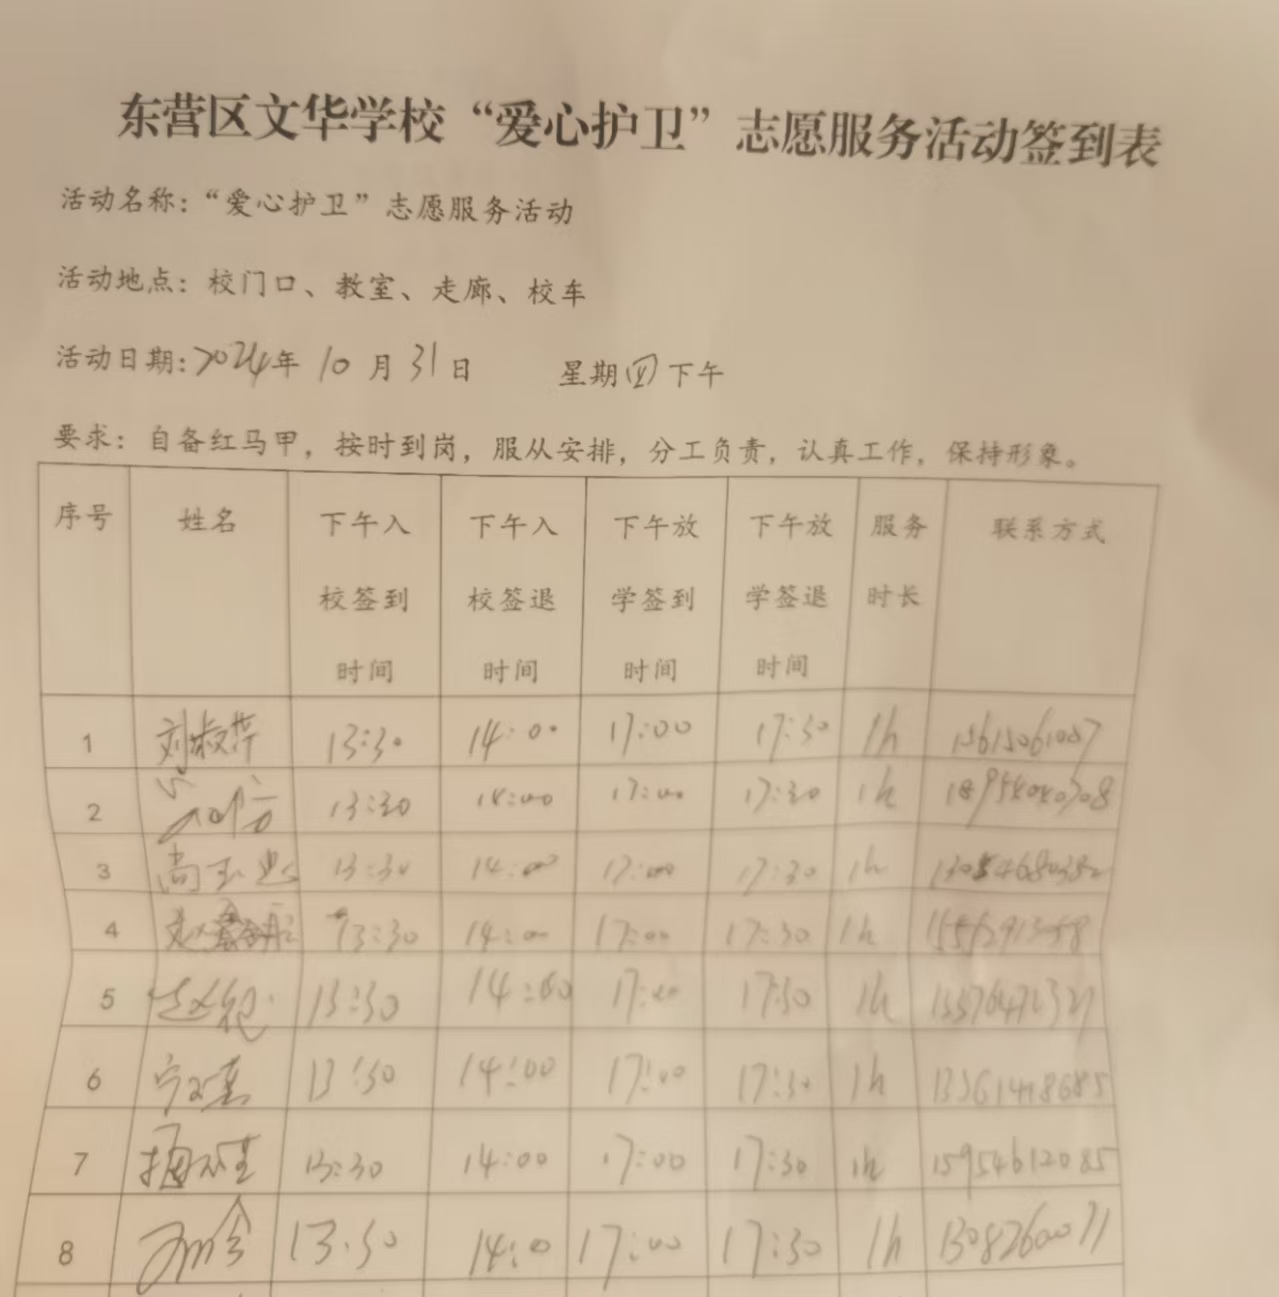 东营区文华学校“爱心护卫”志愿服务活动签到表
活动名称：“爱心护卫”志愿服务活动
活动地点：校门口、教室、走廊、校车
活动日期：2024年 10 月 31 日 星期四下午
要求：自备红马甲，按时到岗，服从安排，分工负责，认真工作，保持形象。
序号 姓名 下午入校签到时间 下午入校签退时间 下午放学签到时间 下午放学签退时间 服务时长 联系方式
1 刘淑萍 13:30 14:00 17:00 17:30 1h
2 13:30 14:00 17:00 17:30 1h
3 13:30 14:00 17:00 17:30 1h
4 13:30 14:00 17:00 17:30 1h
5 13:30 14:00 17:00 17:30 1h
6 13:30 14:00 17:00 17:30 1h
7 13:30 14:00 17:00 17:30 1h 15954612085
8 13:30 14:00 17:00 17:30 1h